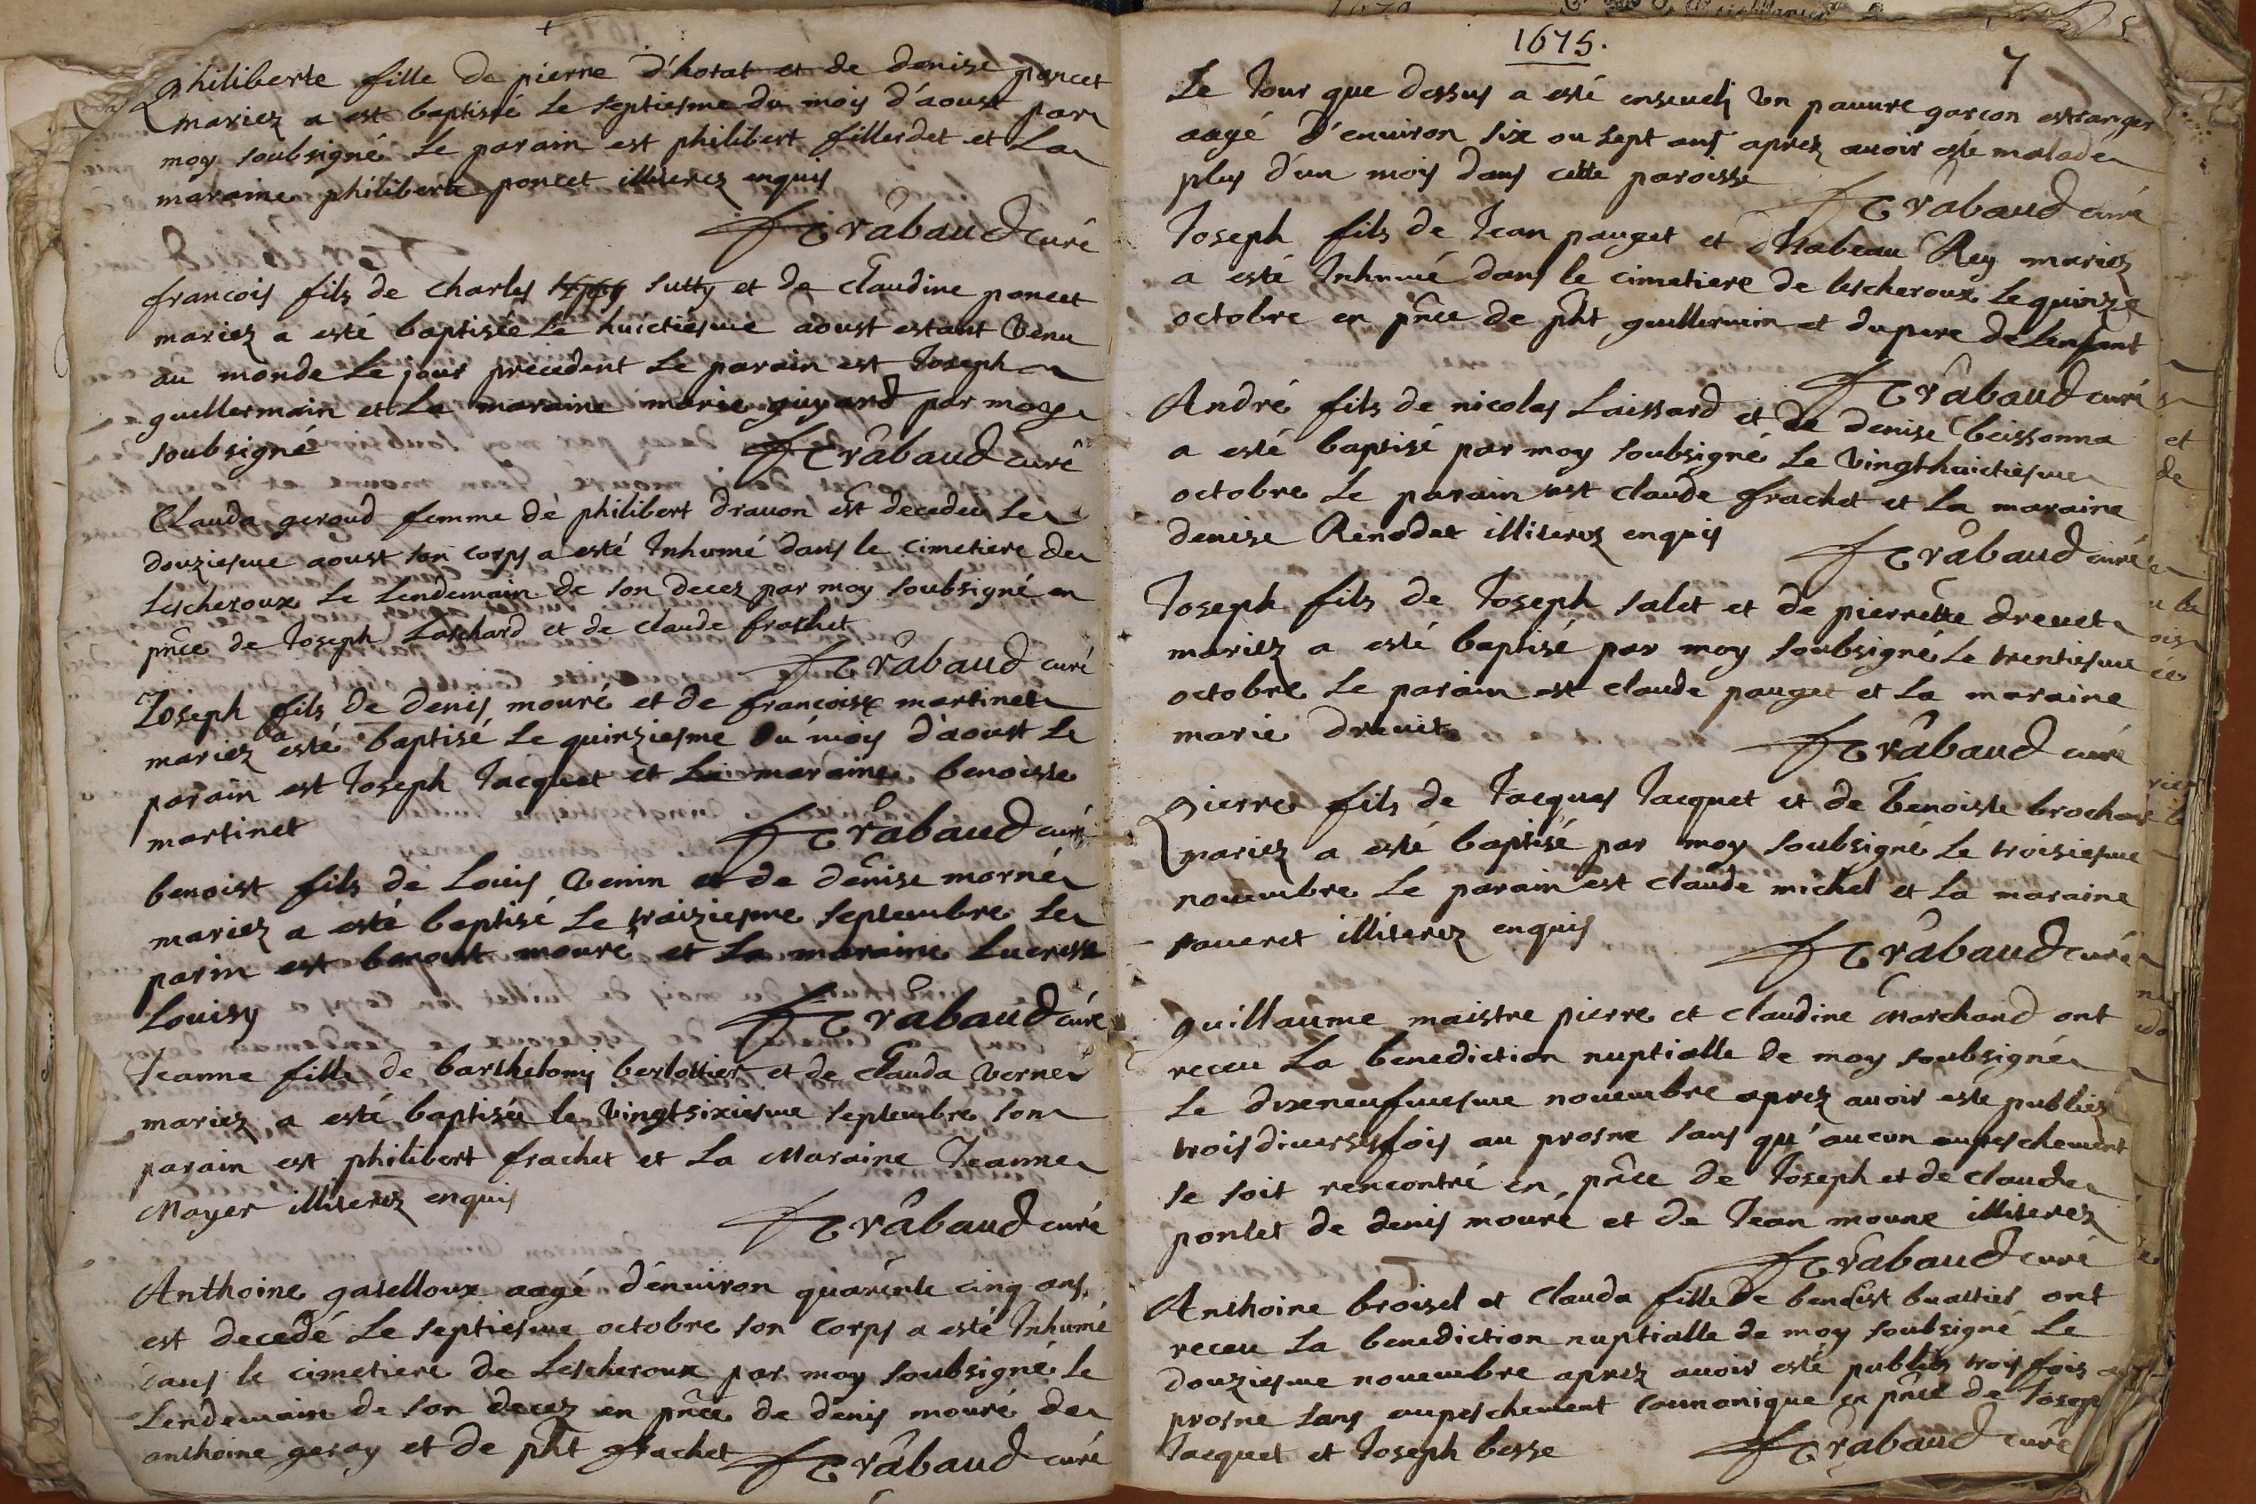 philiberte fille de pierre d'horat et de denise poncet
mariez a est baptisée le septiesme du mois d'aoust par
moy soubsigné le parain est philibert fillerdet et La
maraine philiberte poncet illiterez enquis
Trabaud curé
francois fils de charles sutty et de claudine poncet
mariez a esté baptisée le huictiesme aoust estant venu
au monde Le jour precedent Le parain est Joseph
guellermain et La maraine marie guyard par moy
soubsigné
Trabaud curé
Clauda geroud femme de philibert drauon est decedeu Le
douziesme aoust son corps a esté Inhumé dans le cimetiere de
Lescheroux Le Lendemain de son decez par moy soubsigné en
pnce de Joseph Laschard et de claude frachet
Trabaud curé
Joseph fils de denis mouré et de francoise martinet
mariez a esté baptisé Le quinziesme du mois d'aoust Le
parain est Joseph Jacquet et La maraine benoiste
martinet
Trabaud curé
benoist fils de Louis Venin et de denise morné
mariez a esté baptisé Le traiziesme septembre Le
parin est benoist mouré et La maraine Lucresse
Louisy
Trabaud curé
Jeanne fille de barthelomy berlottier et de Clauda Verne
mariez a esté baptisée le vingtsixiesme septembre son
parain est philibert frachet et La Maraine Jeanne
Mayer illiterez enquis
Trabaud curé
Anthoine gatelloux aagé d'enuiron quarente cinq ans
est decedé Le septiesme octobre son corps a esté Inhumé
dans le cimetiere de Lescheroux par moy soubsigné le
Lendemain de son decez en pnce de denis mouré de
anthoine geray et de pht frachet
Trabaud curé
1675.
7
Le Jour que dessus a esté enseueli vn pauure garcon estranger
aagé d'enuiron six ou sept ans aprez auoir esté malade
plus d'un mois dans cette paroisse
Trabaud curé
Joseph fils de Jean pauget et d'Isabeau Rey mariez
a esté Inhumé dans le cimetiere de lescheroux Le quinze
octobre en pnce de pht guillermin et du pere de Lenfant
Trabaud curé
André fils de nicolas Laissard et de denise beissonna
a esté baptisé par moy soubsigné Le vingthuictiesme
octobre Le parain est claude frachet et La maraine
denise Renodet illiterez enquis
Trabaud curé
Joseph fils de Joseph salet et de pierrette dreuet
mariez a esté baptisé par moy soubsigné Le trentiesme
octobre Le parain est claude pauget et La maraine
marie dreuit
Trabaud curé
Pierre fils de Jacques Jacquet et de benoiste brochar
mariez a esté baptisé par moy soubsigné Le troisiesme
nouembre Le parain est claude michel et La maraine
raueret illiterez enquis
Trabaud curé
guillaume maistre pierre et claudine Marchand ont
receu La benediction nuptialle de moy soubsigné
Le dixneufuiesme nouembre aprez auoir esté publiez
trois diuerses fois au prosne sans qu'aucun empeschement
se soit rencontré en pnce de Joseph et de claude
pontet de denis mouré et de Jean moune illiterez
Trabaud curé
Anthoine broisel et Clauda fille de benoist buattier ont
receu La benediction nuptialle de moy soubsigné Le
douziesme nouembre aprez auoir esté publiez trois fois au
prosne sans empeschement cannonique en pnce de Josep
Jacquet et Joseph besse
Trabaud curé